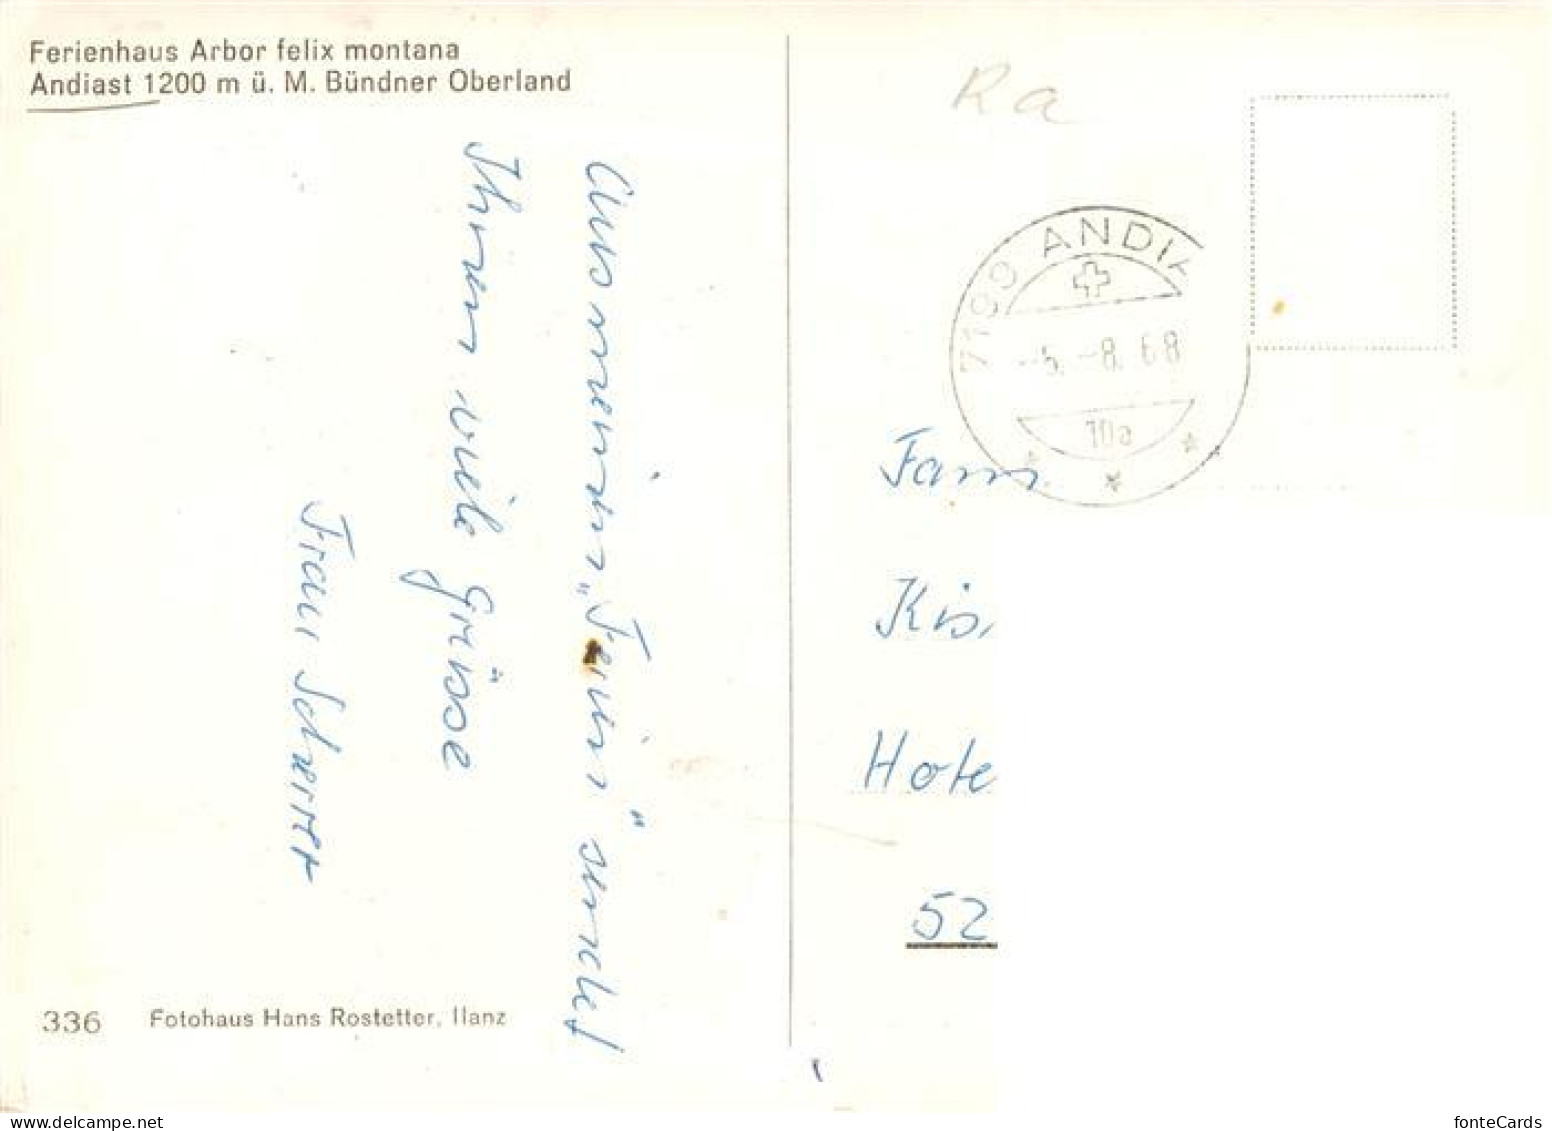 Ferienhaus Arbor felix montana
Andiast 1200 m ü. M. Bündner Oberland
Aus meinen „Ferien" sendet
Ihnen viele Grüsse
Frau Scherrer
336 Fotohaus Hans Rostetter, Ilanz
Ra
7199 ANDIA
-5.-8.68
10a
Fam.
Kis
Hote
52
fonteCards